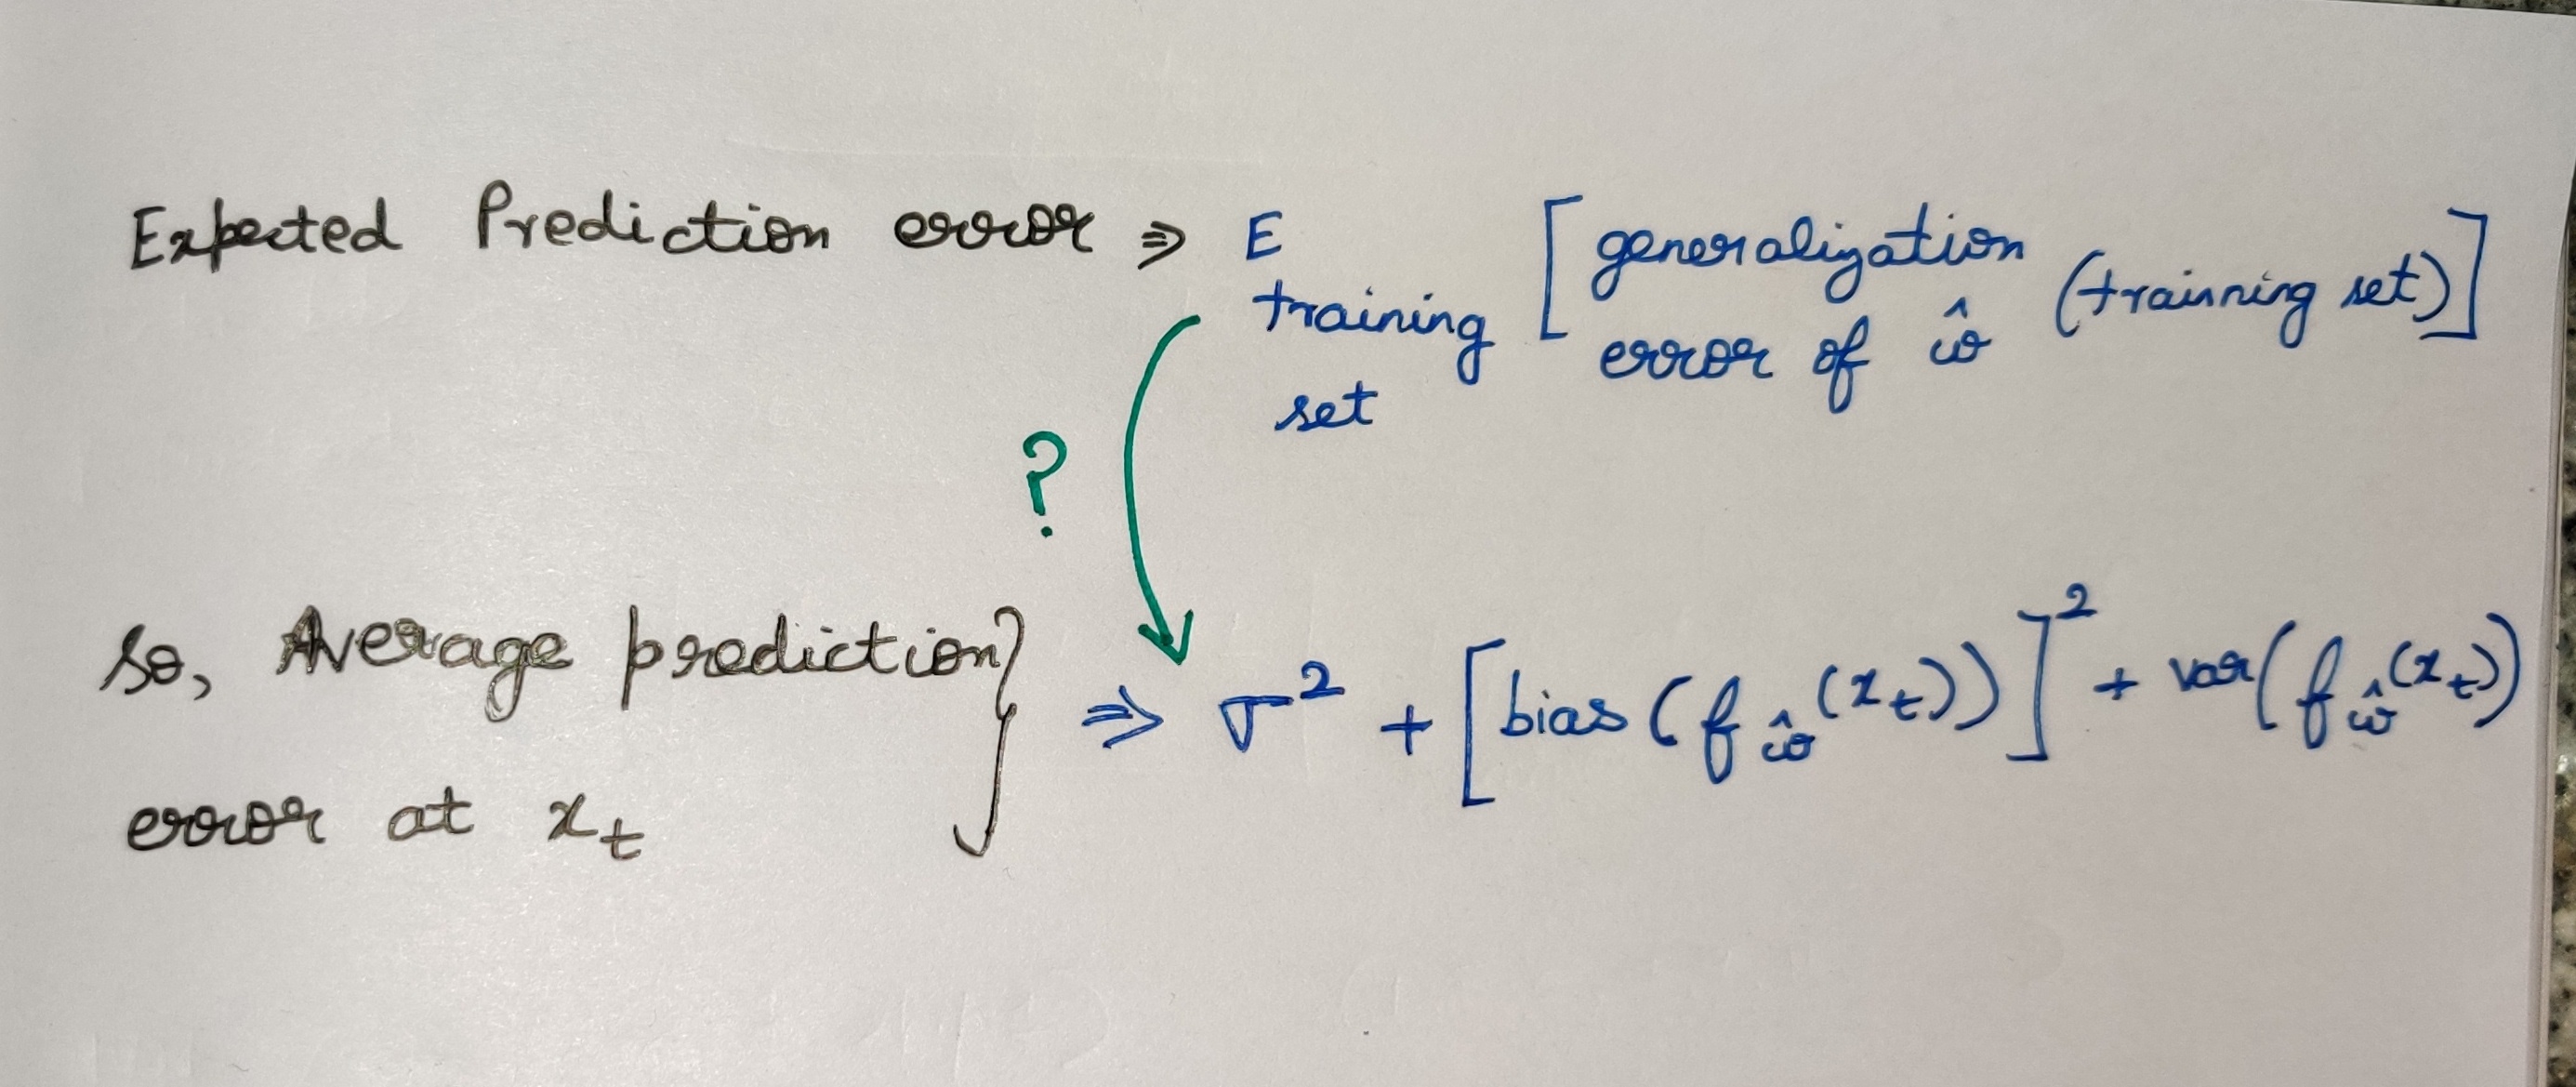 Expected Prediction error ⇒ E training set [generalization error of ŵ (trainning set)]
?
So, Average prediction error at x_t } ⇒ σ² + [bias (f_ŵ(x_t))]² + var(f_ŵ(x_t))